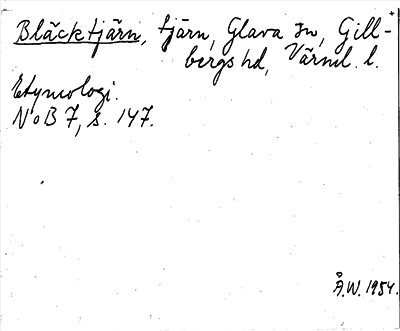 Bläcktjärn, tjärn, Glava sn, Gill-
bergs hd, Värml. l.
Etymologi.
NoB 7, s. 147.
Å.W. 1954.